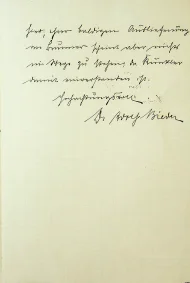 hier, einer baldigen Auslieferung
an Brünner scheint aber nichts
im Wege zu stehen, da Künstler
damit einverstanden ist.
Hochachtungsvoll
Dr Adolf Bieder